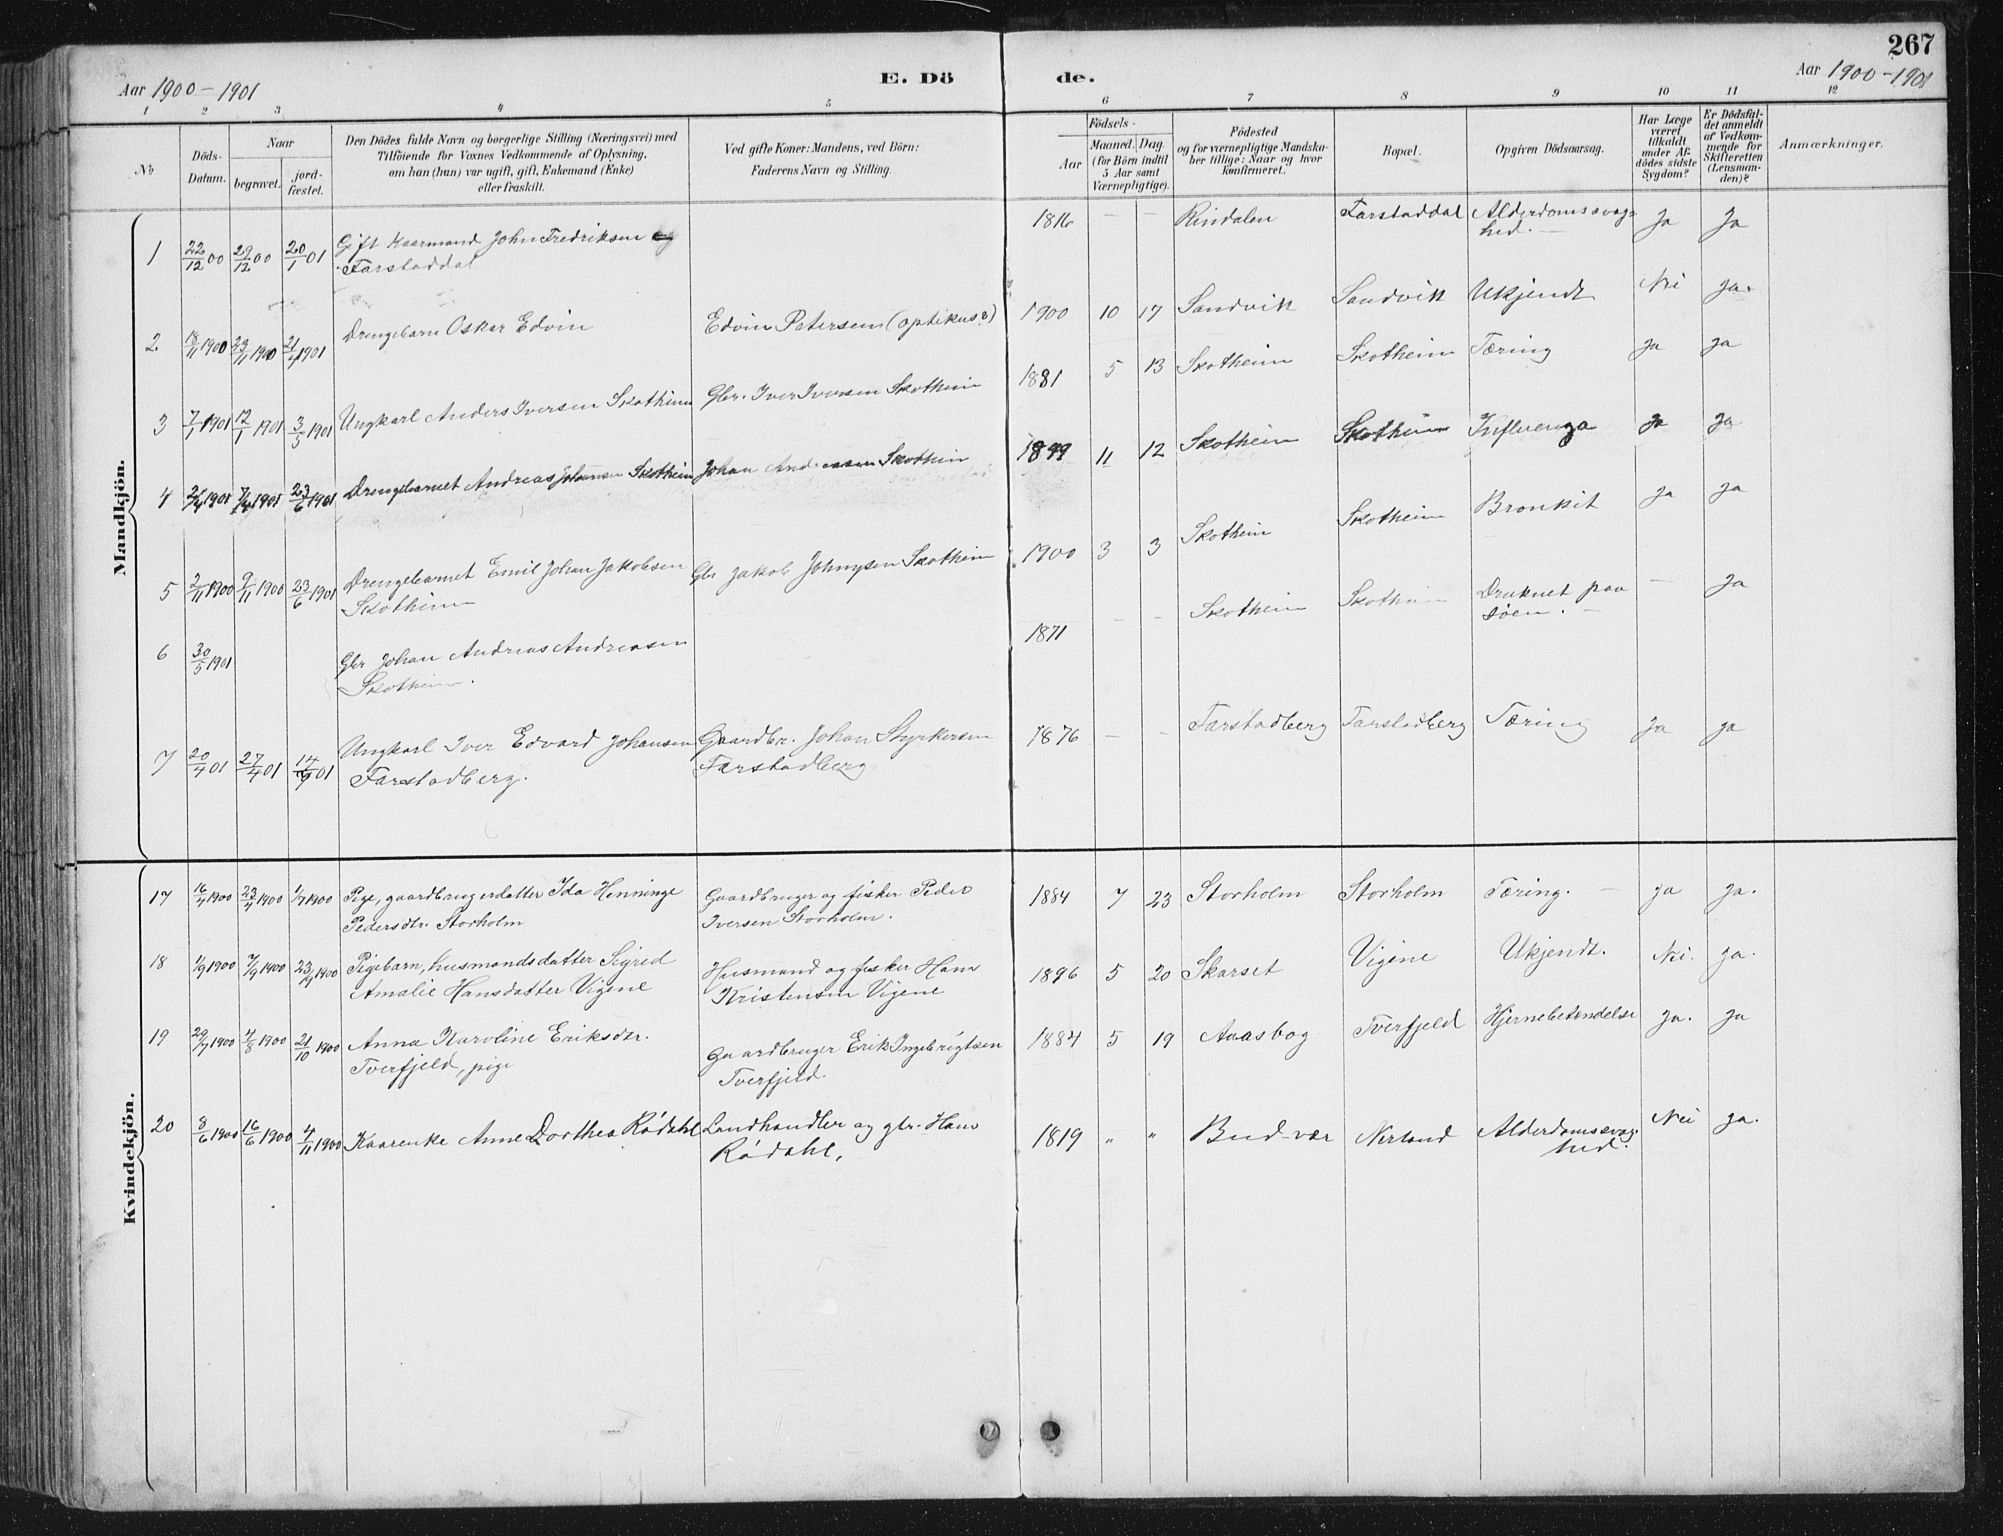 267
Aar 1900-1901
E. Dö
de.
Aar 1900-1901
1 2 3 4 5 6 7 8 9 10 11 12
No
Döds-
Datum.
Naar
begravet.
jord-
fæstet.
Den Dödes fulde Navn og borgerlige Stilling (Næringsvei) med
Tilföiende for Voxnes Vedkommende af Oplysning,
om han (hun) var ugift, gift, Enkemand (Enke)
eller fraskilt.
Ved gifte Koner: Mandens, ved Börn:
Faderens Navn og Stilling.
Födsels-
Aar
Maaned. Dag.
(for Börn indtil
5 Aar samt
Værnepligtige).
Födested
og for værnepligtige Mandska-
ber tillige: Naar og hvor
konfirmeret.
Bopæl.
Opgiven Dödsaarsag.
Har Læge
været
tilkaldt
under Af-
dödes sidste
Sygdom?
Er Dödsfal-
det anmeldt
af Vedkom-
mende for
Skifteretten
(Lensman-
den)?
Anmærkninger.
Mandkjön.
1 22/12 00 29/12 00 20/1 01 Gift Kaarmand John Fredriksen 1816 — — Rindalen Farstaddal Alderdomssvag-
Farstaddal hed. — Ja Ja
2 18/11 1900 23/11 1900 21/1 1901 Drengebarn Oskar Edvin Edvin Petersen (optikus?) 1900 10 17 Sandvik Sandvik Ukjendt Nei ja.
3 7/1 1901 12/1 1901 3/5 1901 Ungkarl Anders Iversen Skotheim Gbr. Iver Iversen Skotheim 1881 5 13 Skotheim Skotheim Tæring ja ja
4 2/4 1901 7/4 1901 23/6 1901 Drengebarnet Andreas Johansen Skotheim Johan Andreasen Skotheim 1899 11 12 Skotheim Skotheim Influenza Ja ja
5 2/11 1900 9/11 1900 23/6 1901 Drengebarnet Emil Johan Jakobsen Gbr Jakob Johnysen Skotheim 1900 3 3 Skotheim Skotheim Bronkit ja ja
Skotheim
6 30/5 1901 Gbr Johan Andreas Andreasen 1871 - - Skotheim Skotheim Druknet paa — ja
Skotheim. söen. —
7 20/4 01 27/4 01 Ungkarl Iver Edvard Johansen Gaardbr. Johan Styrkersen 1876 — - Farstadberg Farstadberg Tæring ja ja
Farstadberg. Farstadberg
Kvindekjön.
17 16/4 1900 23/4 1900 1/7 1900 Pige, gaardbrugerdatter Ida Henninge Gaardbruger og fisker Peder 1884 7 23 Storholm Storholm Tæring. — ja ja.
Pedersdtr. Storholm Iversen Storholm.
18 1/9 1900 7/9 1900 23/9 1900 Pigebarn, husmandsdatter Sigrid Husmand og fisker Hans 1896 5 20 Skarset Vigene Ukjendt. Nei. ja.
Amalie Hansdatter Vigene Kristensen Vigene
19 29/7 1900 4/8 1900 21/10 1900 Anna Karoline Eriksdtr. Gaardbruger Erik Ingebrigtsen 1884 5 19 Aaasbog Tverfjeld Hjernebetændelse ja. ja
Tverfjeld, pige Tverfjeld.
20 8/6 1900 16/6 1900 4/11 1900 Kaarenke Anne Dorthea Rödahl Landhandler og gbr. Hans 1819 " " Bud-vær Nerland Alderdomssvag- Nei ja.
Rödahl, hed.